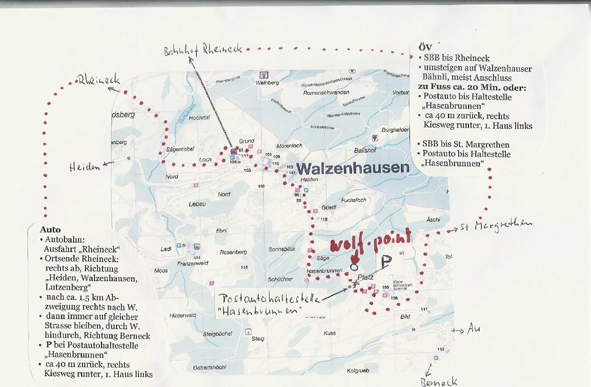 Bahnhof Rheineck
Rheineck
Heiden
ÖV
• SBB bis Rheineck
• umsteigen auf Walzenhauser
Bähnli, meist Anschluss
zu Fuss ca. 20 Min. oder:
• Postauto bis Haltestelle
„Hasenbrunnen"
• ca 40 m zurück, rechts
Kiesweg runter, 1. Haus links
• SBB bis St. Margrethen
• Postauto bis Haltestelle
„Hasenbrunnen"
Weinberg
Romenschwanden
Hostetel
Sägentobel
Grund
Loch
Nord
Lebau
Nord
Ebni
Walzenhausen
Burghelden
Güetli
Ledi
Franzenweid
Rosenberg
Moos
Schlüchter
Säge
Hasenbrunnen
wolf-point
P
Platz
Bild
St Margrethen
Au
Berneck
Postautohaltestelle
"Hasenbrunnen"
Hinterwald
Steig
Kuss
Gebertshöchi
Kolgrueb
Auto
• Autobahn:
Ausfahrt „Rheineck"
• Ortsende Rheineck:
rechts ab, Richtung
„Heiden, Walzenhausen,
Lutzenberg"
• nach ca. 1.5 km Ab-
zweigung rechts nach W.
• dann immer auf gleicher
Strasse bleiben, durch W.
hindurch, Richtung Berneck
• P bei Postautohaltestelle
„Hasenbrunnen"
• ca 40 m zurück, rechts
Kiesweg runter, 1. Haus links